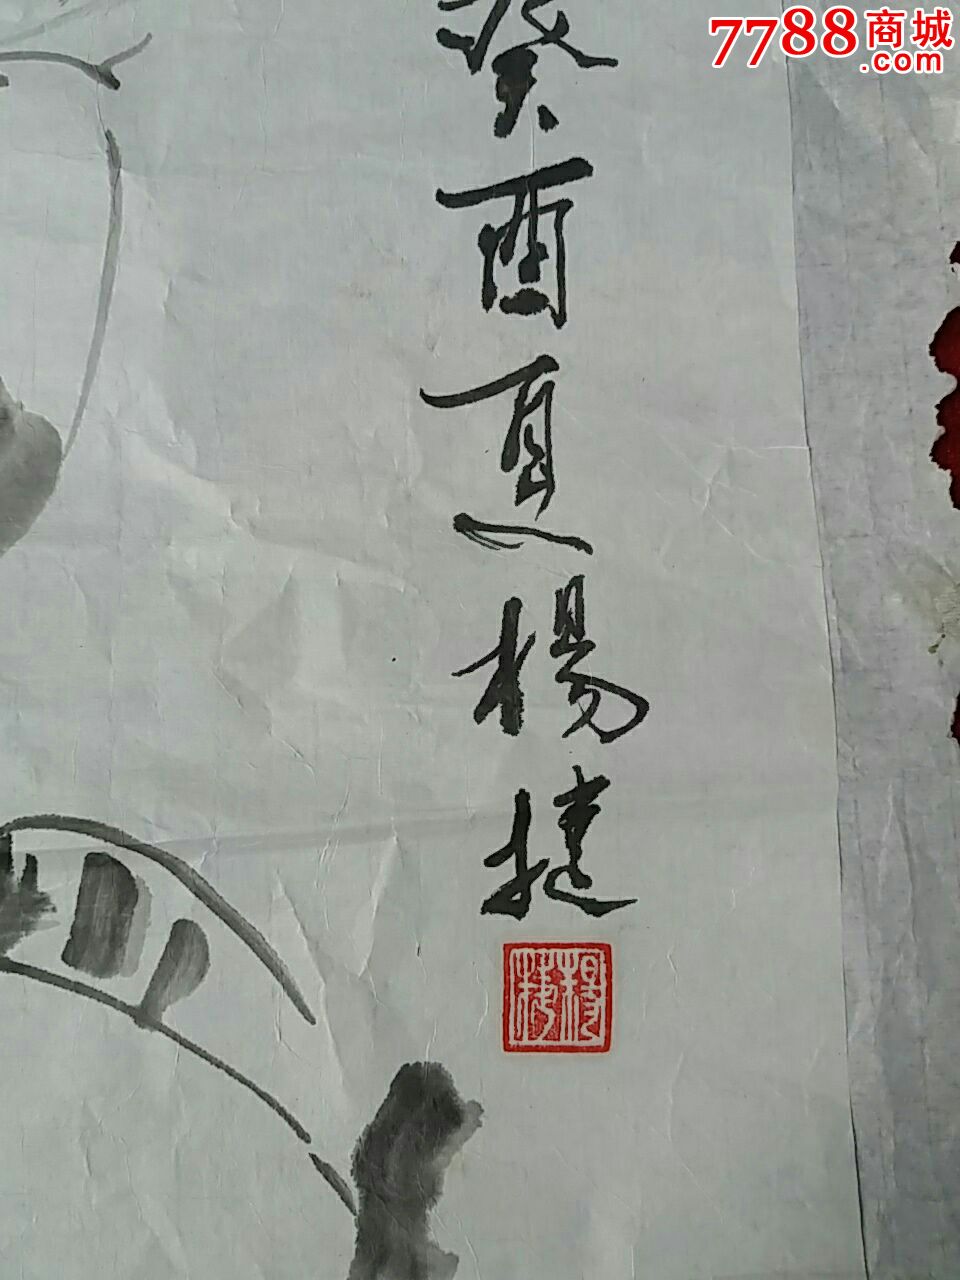 7788商城
.com
癸酉夏杨捷
楊捷